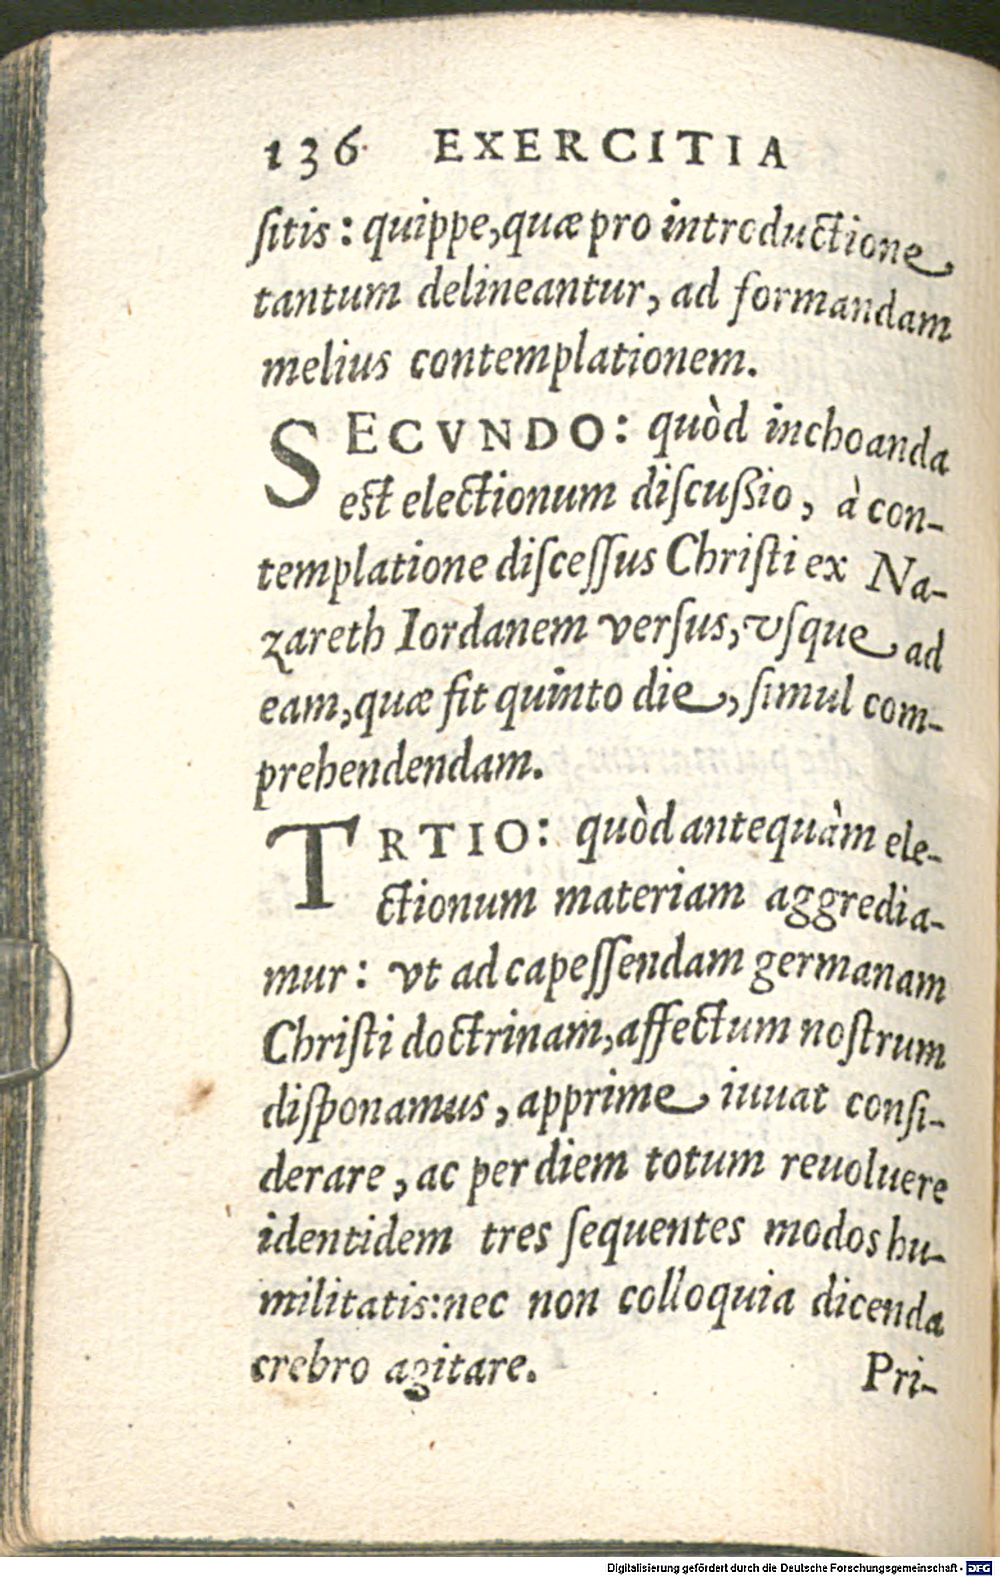 136 EXERCITIA
ſitis: quippe, quæ pro introductione
tantum delineantur, ad formandam
melius contemplationem.
SECVNDO: quòd inchoanda
est electionum diſcuſſio, à con-
templatione diſceſſus Chriſti ex Na-
zareth Iordanem verſus, vſque ad
eam, quæ fit quinto die, ſimul com-
prehendendam.
TRTIO: quòd antequàm ele-
ctionum materiam aggredia-
mur: vt ad capeſſendam germanam
Chriſti doctrinam, affectum noſtrum
diſponamus, apprime iuuat conſi-
derare, ac per diem totum reuoluere
identidem tres ſequentes modos hu-
militatis: nec non colloquia dicenda
crebro agitare.
Pri-
Digitalisierung gefördert durch die Deutsche Forschungsgemeinschaft - DFG